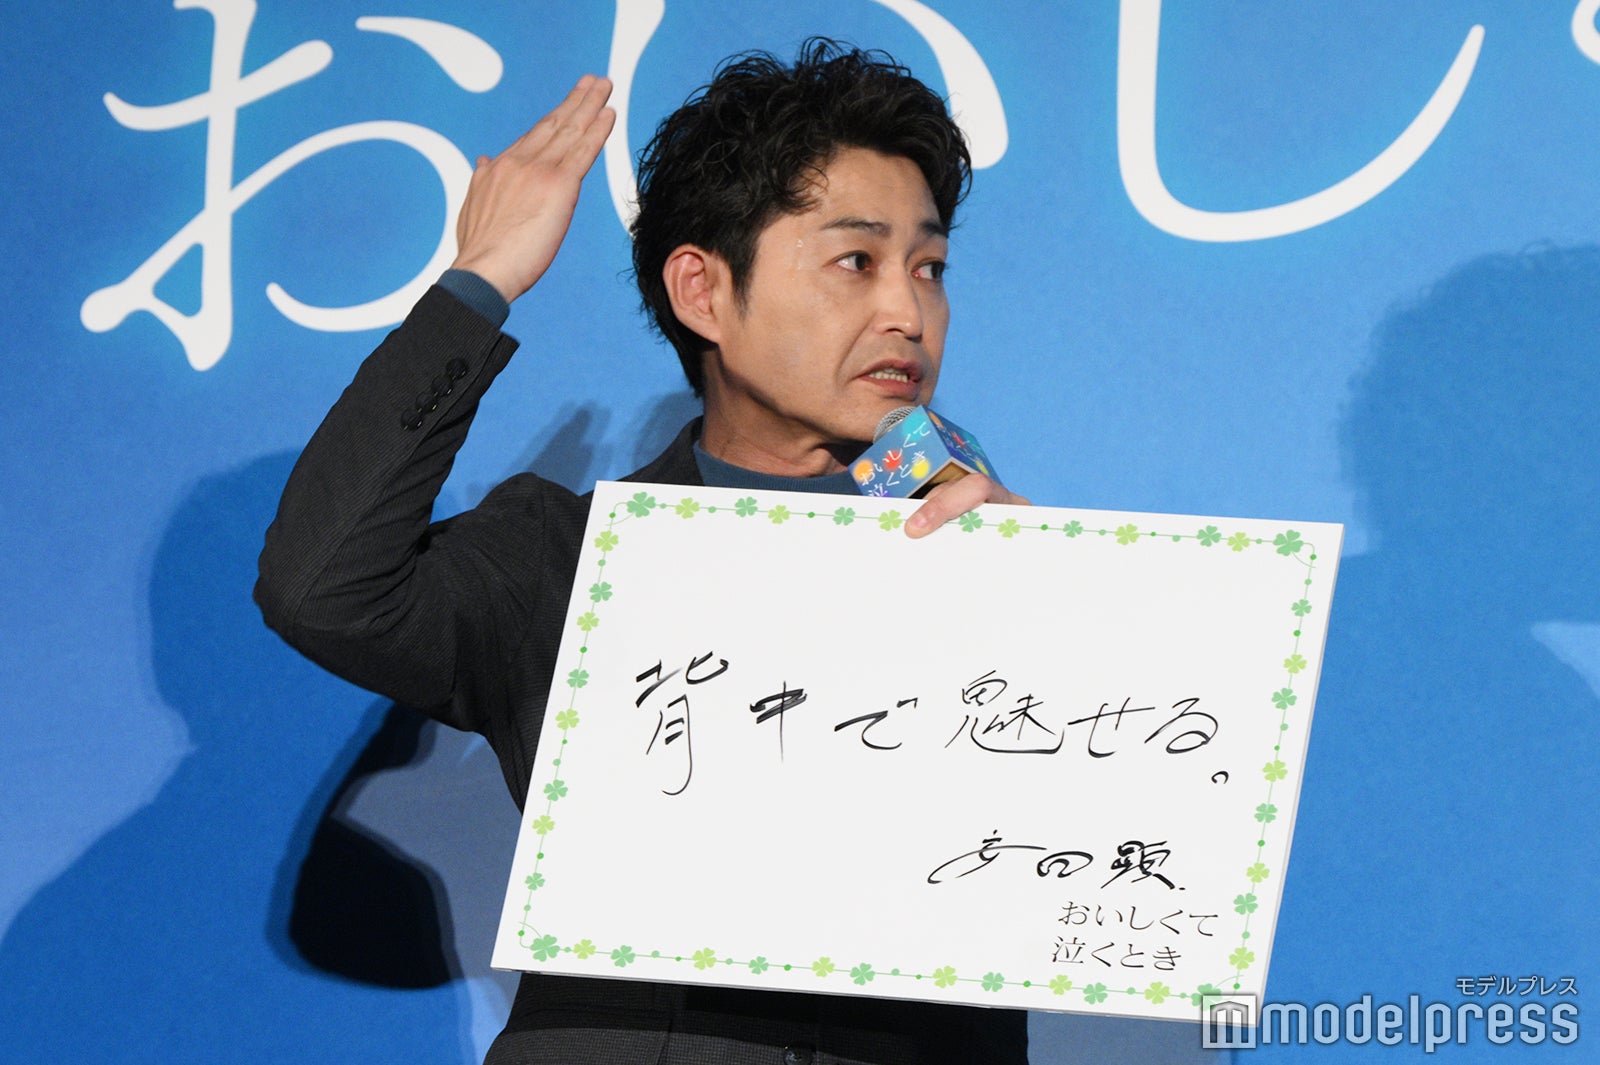 おいし
おいしくて
泣くとき
背中で魅せる。
安田顕.
おいしくて
泣くとき
モデルプレス
modelpress